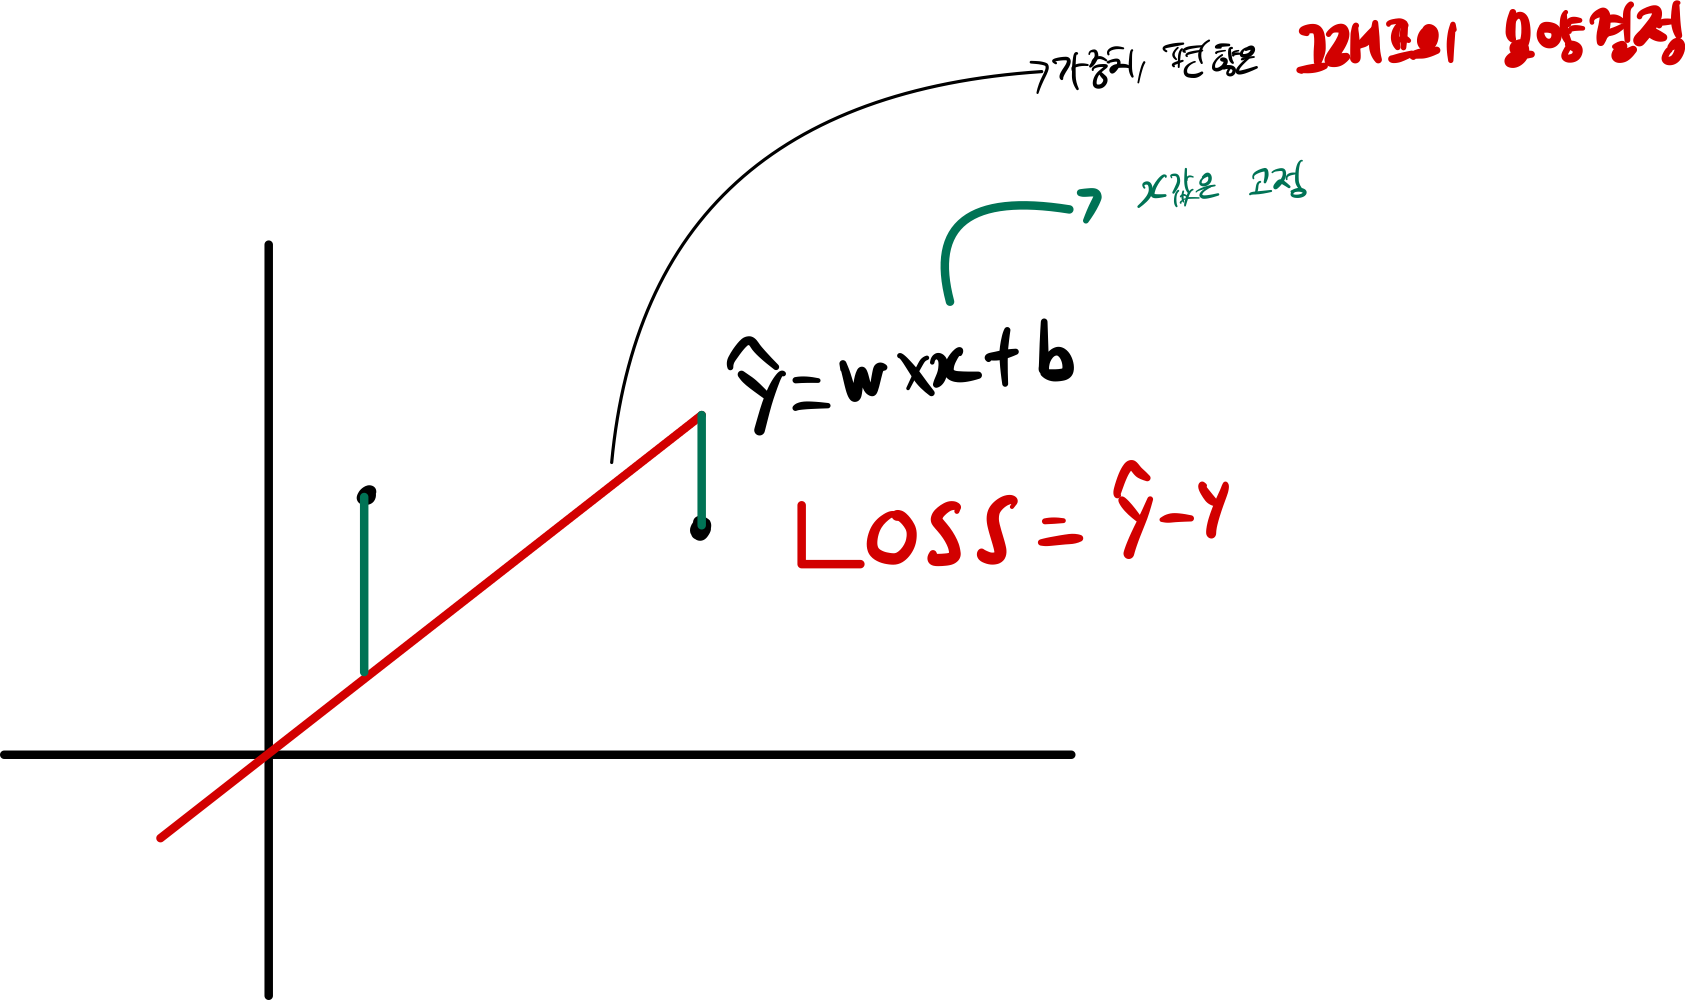 가중치, 편향은 그래프의 모양결정
x값은 고정
ŷ = w×x + b
Loss = ŷ - y